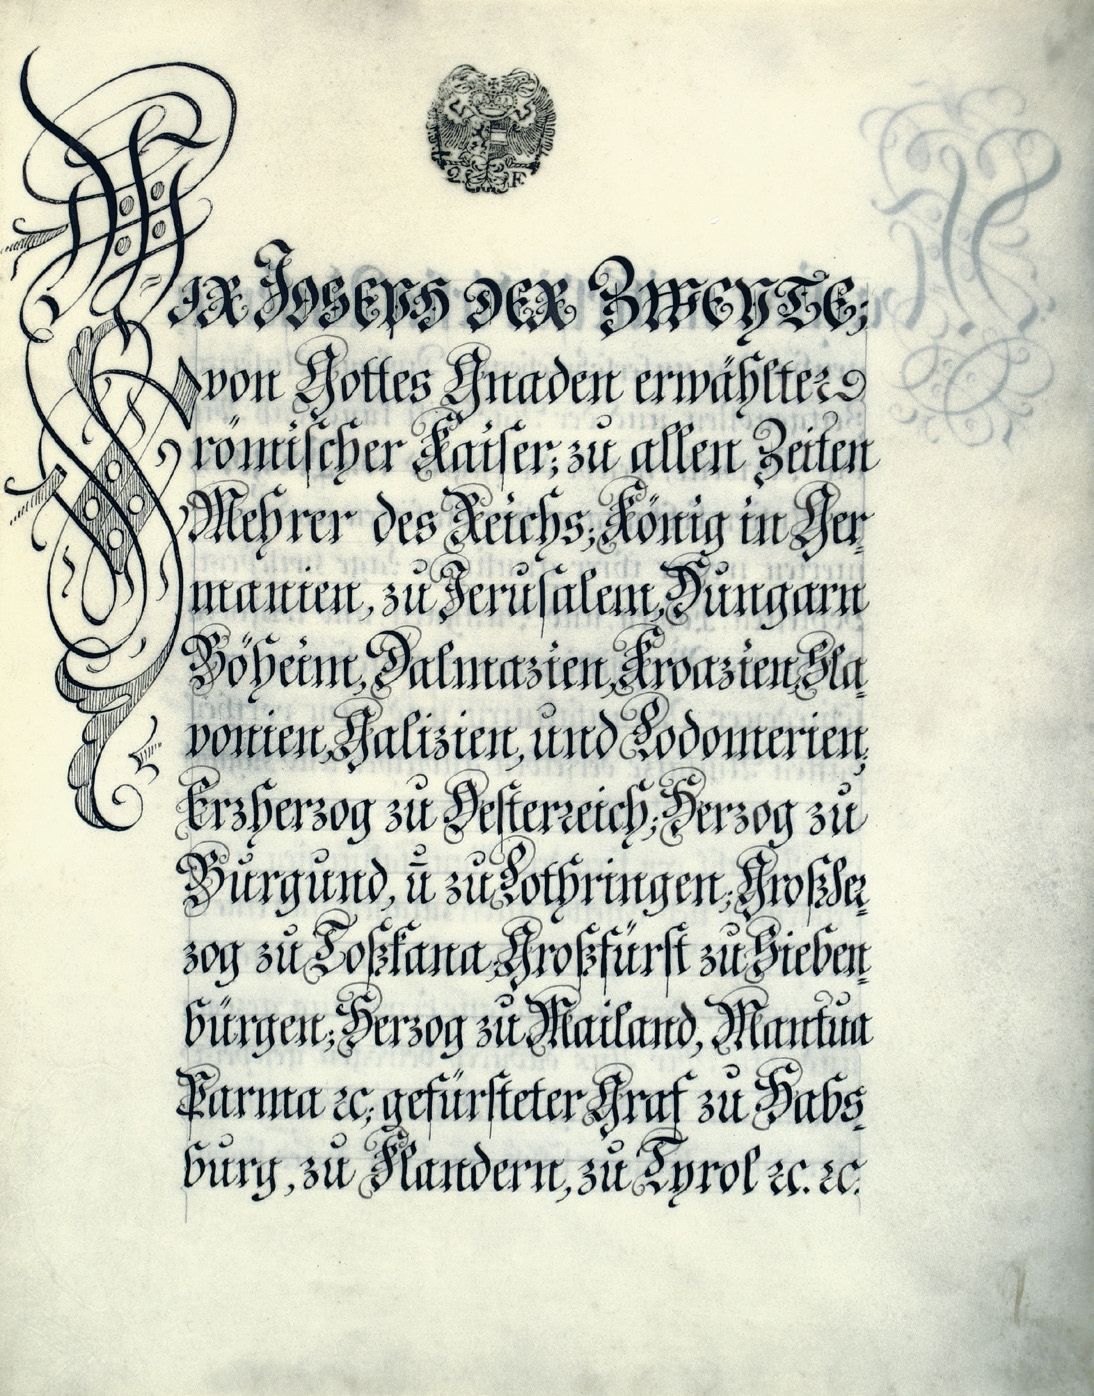 2. F.
WIR JOSEPH DER ZWEYTE;
von Gottes Gnaden erwählter
römischer Kaiser; zu allen Zeiten
Mehrer des Reichs; König in Ger-
manien, zu Jerusalem, Hungarn
Böheim, Dalmazien, Kroazien, Sla-
vonien, Galizien, und Lodomerien;
Erzherzog zu Oesterreich; Herzog zu
Burgund, ū zu Lothringen; Großher-
zog zu Toßkana; Großfürst zu Sieben-
bürgen; Herzog zu Mailand, Mantua
Parma ꝛc; gefürsteter Graf zu Habs-
burg, zu Flandern, zu Tyrol ꝛc. ꝛc.